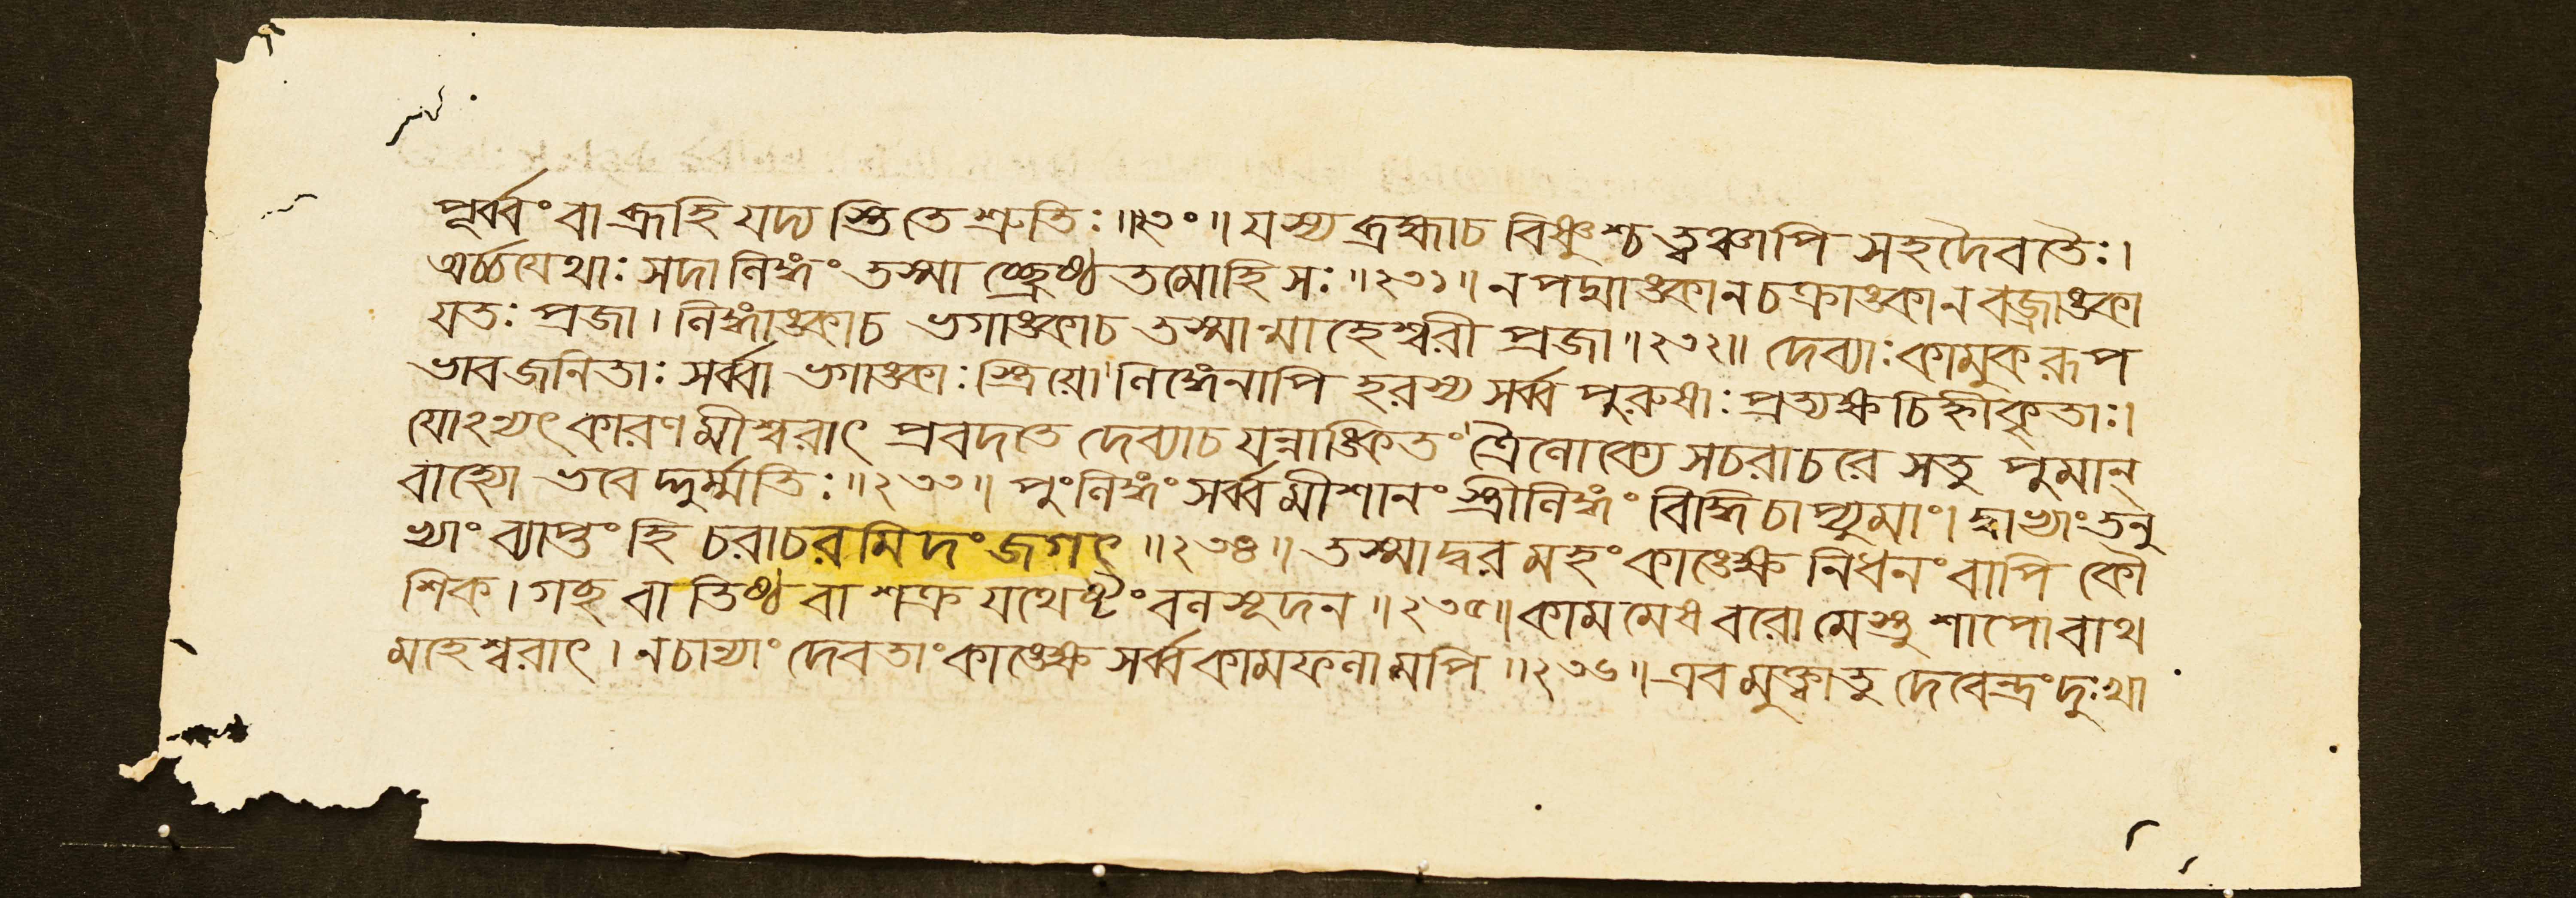 পূর্ব্বং বা ব্রূহি যদ্য স্তি তে শ্রুতিঃ ॥২৩০॥ যস্য ব্রহ্মা চ বিষ্ণুশ্চ ত্বঞ্চাপি সহদৈবতৈঃ।
অর্চ্চয়েথাঃ সদা লিঙ্গং তস্মা চ্ছ্রেষ্ঠ তমোহি সঃ ॥২৩১॥ ন পদ্মাঙ্কা ন চক্রাঙ্কা ন বজ্রাঙ্কা
যতঃ প্রজা। লিঙ্গাঙ্কা চ ভগাঙ্কা চ তস্মান্মাহেশ্বরী প্রজা ॥২৩২॥ দেব্যাঃ কামুক রূপ
ভাব জনিতাঃ সর্ব্বা ভগাঙ্কাঃ স্ত্রিয়ো লিঙ্গেনাপি হরস্য সর্ব্ব পুরুষাঃ প্রত্যক্ষ চিহ্নীকৃতাঃ।
যোঽন্যৎ কারণ মীশ্বরাৎ প্রবদতে দেব্যা চ যন্নাঙ্কিতং ত্রৈলোক্যে সচরাচরে সতু পুমান্
বাহ্যো ভবে দ্দুর্ম্মতিঃ ॥২৩৩॥ পুংলিঙ্গং সর্ব্ব মীশানং স্ত্রীলিঙ্গং বিদ্ধি চাপ্যুমাং। দ্বাভ্যাং তনু
ভ্যাং ব্যাপ্তং হি চরাচর মিদং জগৎ ॥২৩৪॥ তস্মাদ্বর মহং কাঙ্ক্ষে নিধনং বাপি কৌ
শিক। গচ্ছ বা তিষ্ঠ বা শক্র যথেষ্টং বলসূদন ॥২৩৫॥ কাম মেষ বরো মেস্তু শাপো বাথ
মহেশ্বরাৎ। ন চান্যাং দেবতাং কাঙ্ক্ষে সর্ব্ব কামফলামপি ॥২৩৬॥ এব মুক্ত্বা তু দেবেন্দ্রং দুঃখা